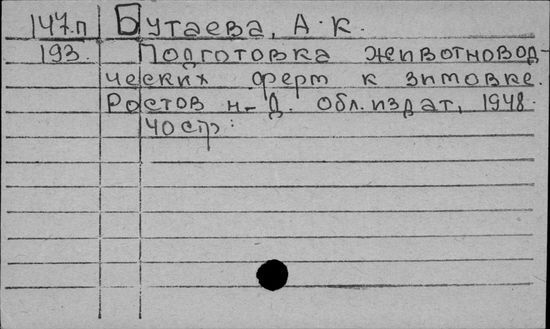 147.п Бутаева, А. К.
193. Подготовка животновод-
ческих ферм к зимовке.
Ростов н-Д. обл.издат, 1948.
40стр.